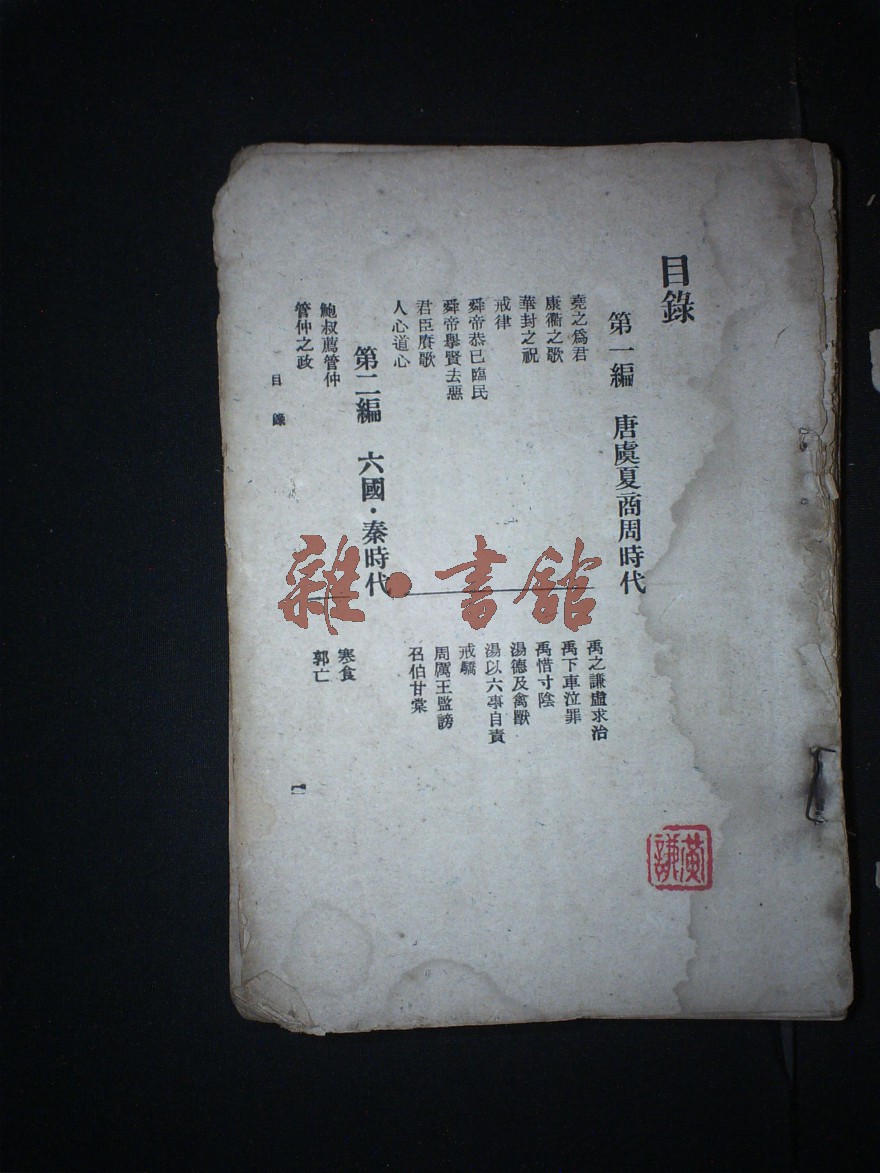 目錄
第一編 唐虞夏商周時代
堯之爲君
康衢之歌
華封之祝
戒律
舜帝恭己臨民
舜帝舉賢去惡
君臣賡歌
人心道心
禹之謙虛求治
禹下車泣罪
禹惜寸陰
湯德及禽獸
湯以六事自責
戒驕
周厲王監謗
召伯甘棠
第二編 六國·秦時代
鮑叔薦管仲
管仲之政
寒食
郭亡
目錄
一
雜·書館
黃謙